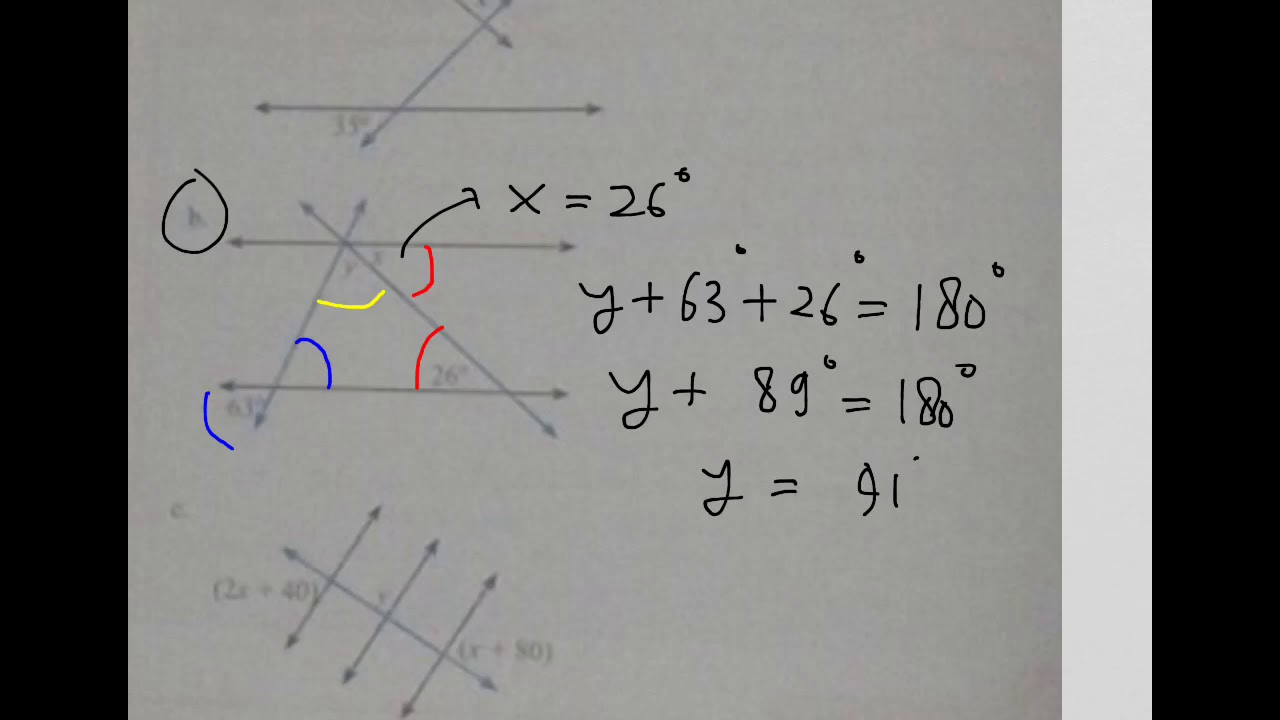 35°
b.
x = 26°
x
y
y + 63° + 26° = 180°
26°
y + 89° = 180°
63°
y = 91°
c.
(2x + 40)
(x + 80)